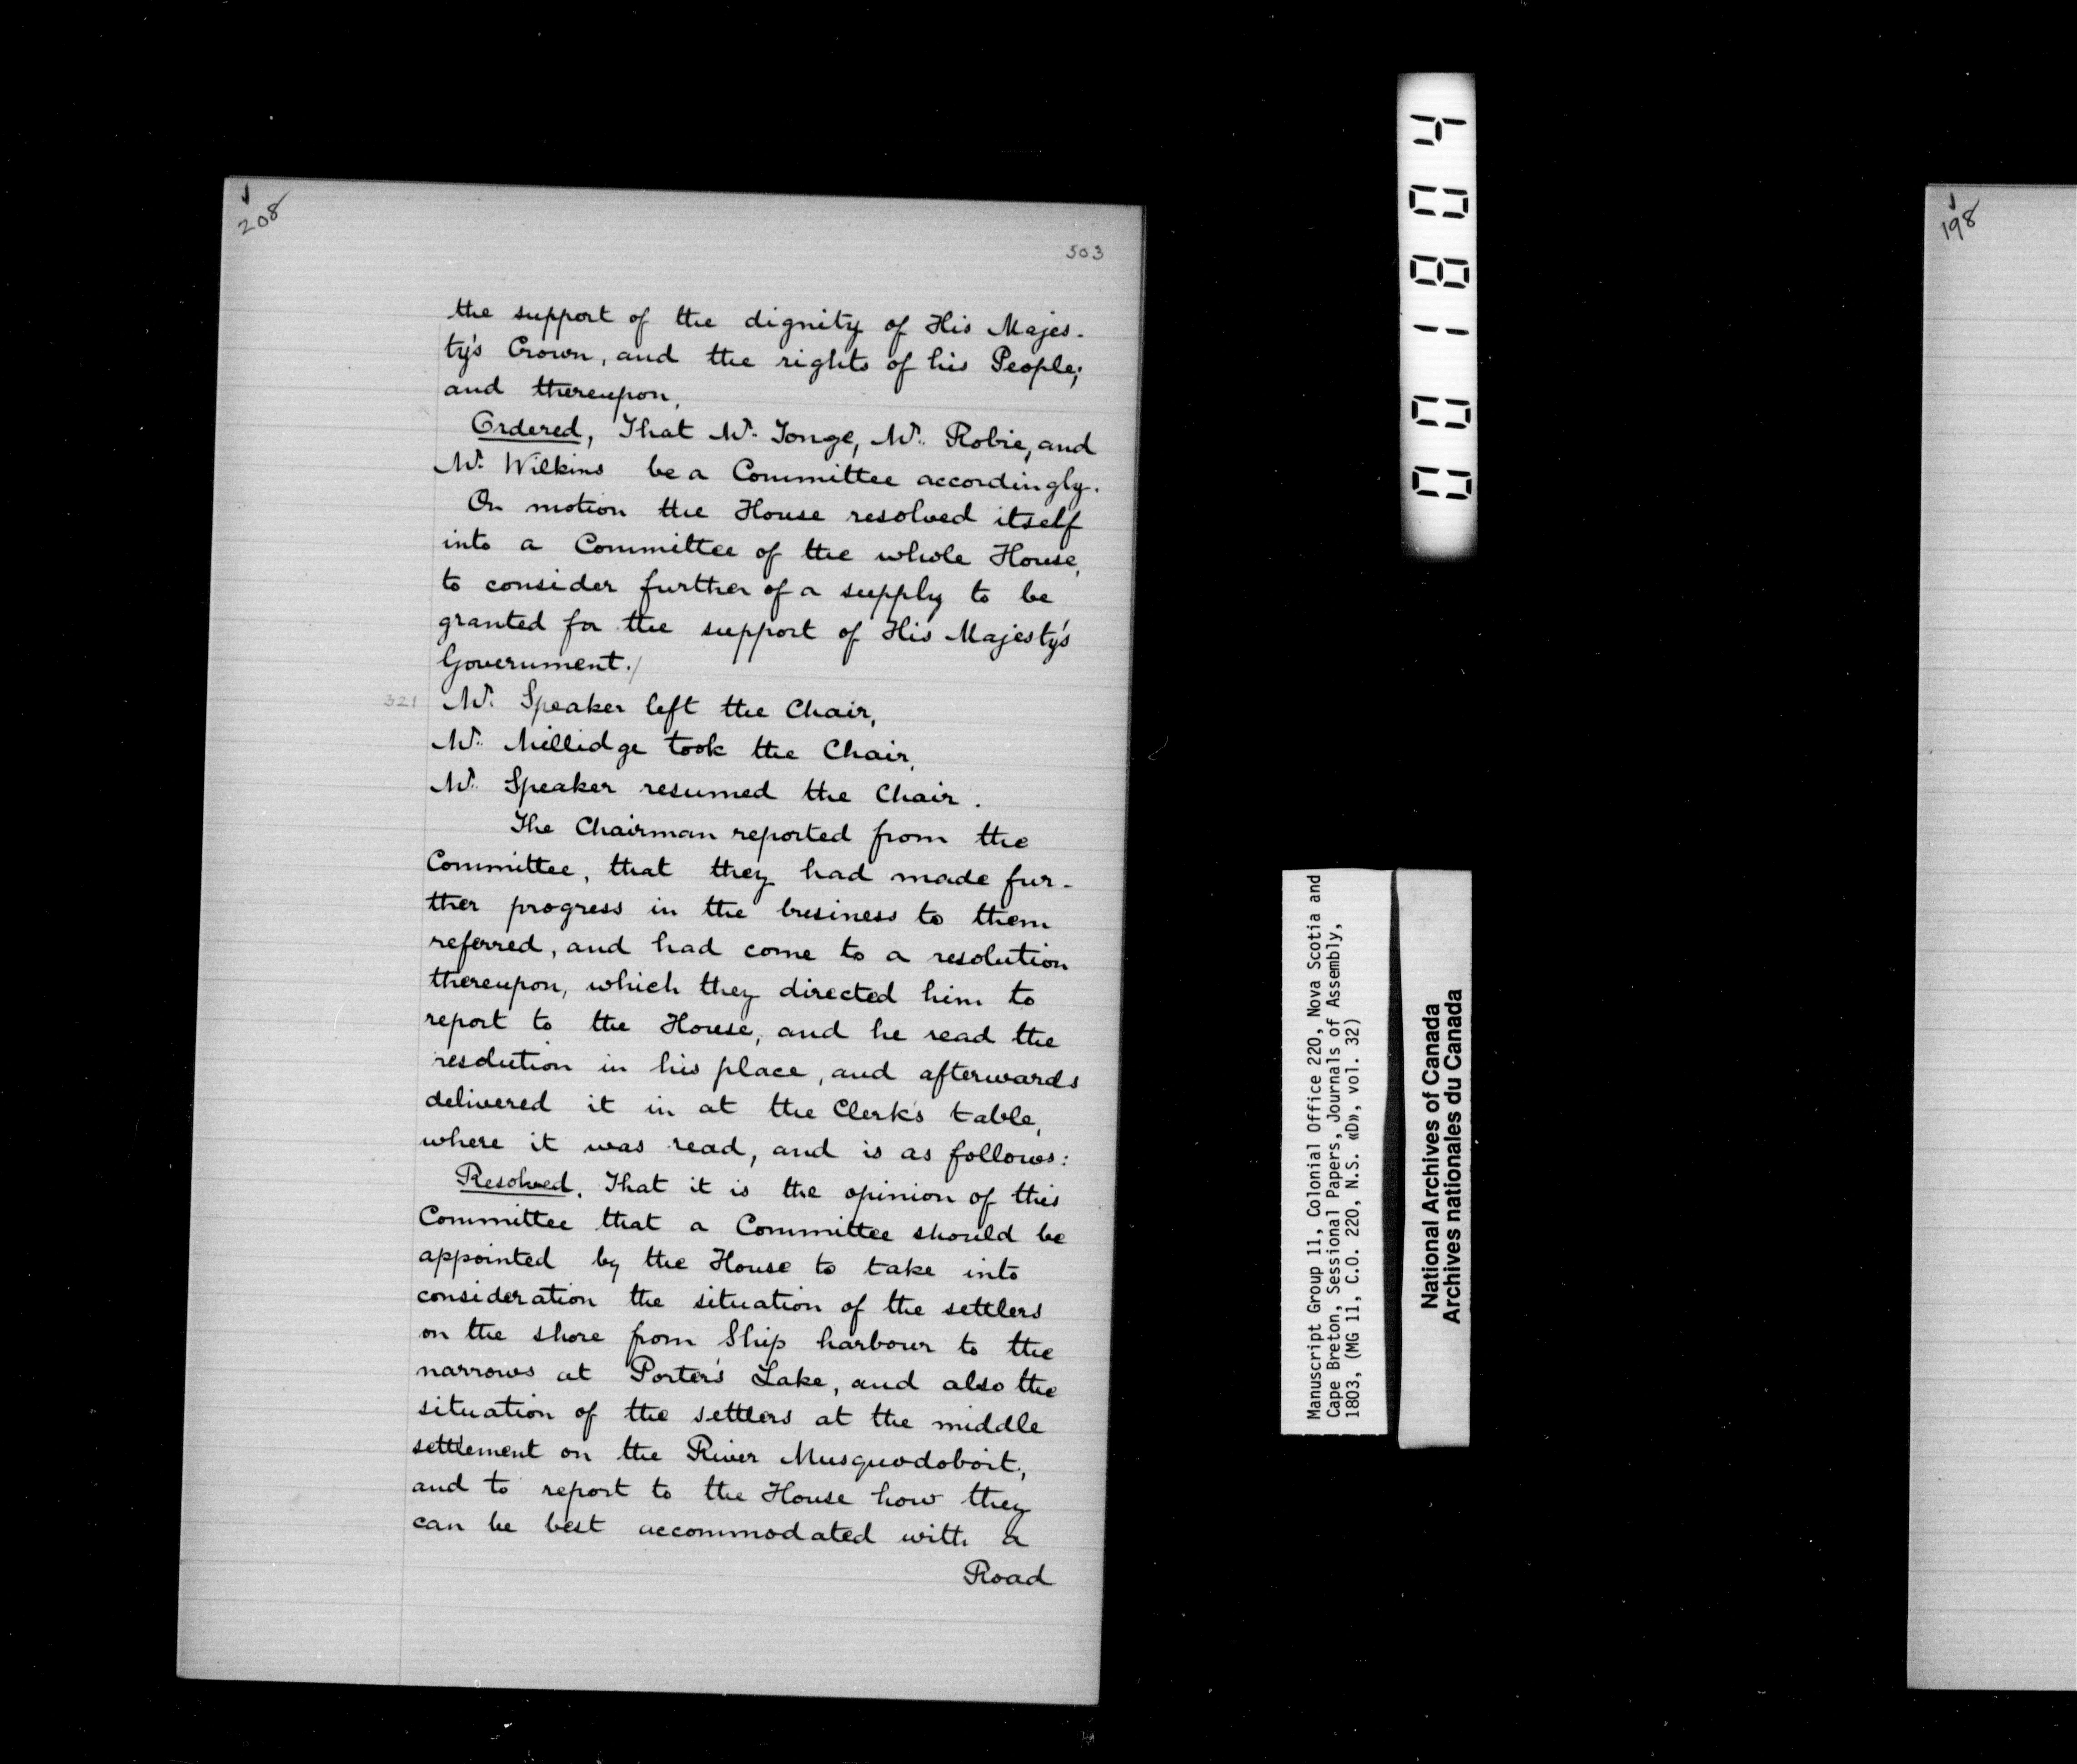 208
503
the support of the dignity of His Majes-
ty's Crown, and the rights of his People;
and thereupon,
Ordered, That Mr. Tonge, Mr. Robie, and
Mr. Wilkins be a Committee accordingly.
On motion the House resolved itself
into a Committee of the whole House,
to consider further of a supply to be
granted for the support of His Majesty's
Government./
321 Mr. Speaker left the Chair,
Mr. Millidge took the Chair,
Mr. Speaker resumed the Chair.
The Chairman reported from the
Committee, that they had made fur-
ther progress in the business to them
referred, and had come to a resolution
thereupon, which they directed him to
report to the House, and he read the
resolution in his place, and afterwards
delivered it in at the Clerk's table,
where it was read, and is as follows:
Resolved, That it is the opinion of this
Committee that a Committee should be
appointed by the House to take into
consideration the situation of the settlers
on the shore from Ship harbour to the
narrows at Porter's Lake, and also the
situation of the settlers at the middle
settlement on the River Musquodoboit,
and to report to the House how they
can be best accommodated with a
Road
001804
Manuscript Group 11, Colonial Office 220, Nova Scotia and
Cape Breton, Sessional Papers, Journals of Assembly,
1803, (MG 11, C.O. 220, N.S. «D», vol. 32)
National Archives of Canada
Archives nationales du Canada
198